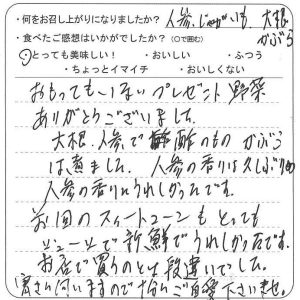 ・何をお召し上がりになりましたか？ 人参、じゃがいも、大根
かぶら
・食べたご感想はいかがでしたか？（○で囲む）
・とっても美味しい！ ・おいしい ・ふつう
・ちょっとイマイチ ・おいしくない
おもってもいないプレゼント野菜
ありがとうございました。
大根、人参で酢のもの かぶら
は煮ました。人参の香りは久しぶりの
人参の香りでうれしかったです。
お回のスイートコーンもとっても
ジューシーで新鮮でうれしかったです。
お店で買うのとは段違いでした。
寒さ向いますので十分ご自愛下さいませ。